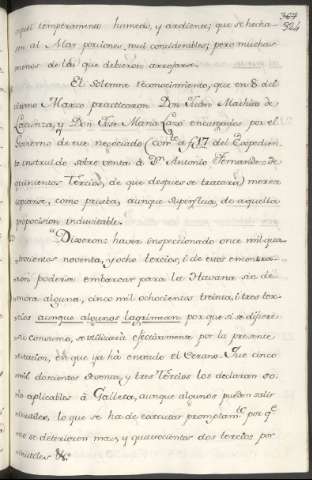 367
524
aquel temperamento humedo, y ardiente; que se hecha-
sen al Mar porciones mui considerables; pero muchas
menos de las que debieron arrojarse.
El solemne reconocimiento, que en 8 del
ultimo Marzo practicaron Don Juan Mathias de
y Don Jose Maria Lazo encargados por el
Supremo de este negociado (con^ta á f 17 del Expedien-
te instruido sobre venta á D.^n Antonio Fernandez de
quinientos Tercios, de que despues se tratará) merece
copiarse, como prueba, aunque superflua, de aquella
proposicion indubitable.
"Dixeron: haver inspeccionado once mil qua-
trocientos noventa, y ocho tercios, i de ellos encontra-
ron poderse embarcar para la Havana sin de-
mora alguna, cinco mil ochocientos treinta, i tres ter-
cios aunque algunos lagrimean por que si se difiere
su consumo, se utilizaria efectivamente por la presente
estacion, en que ya há entrado el Verano. Que cinco
mil doscientos sesenta, y tres Tercios los declaran so-
lo aplicables á Galleta, aunque algunos pueden salir
inutiles, lo que se ha de executar promptam.^te por q.^e
no se deterioren mas, y quatrocientos dos tercios por
inutiles &.^a